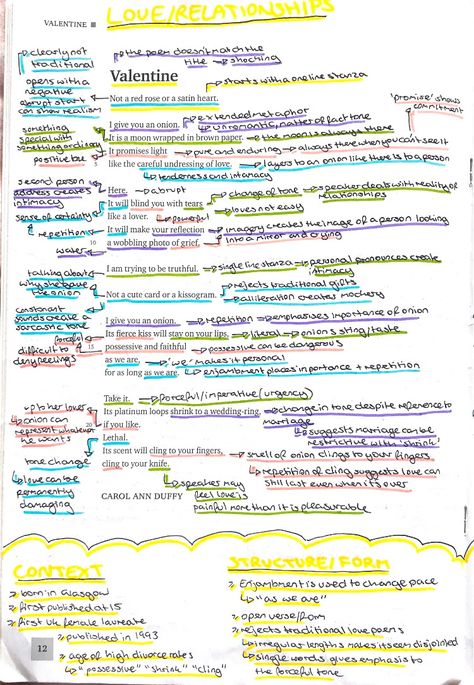 LOVE/RELATIONSHIPS
VALENTINE
→ clearly not traditional
↳ the poem doesn't match the title → shocking
Valentine
↳ starts with a one line stanza
opens with a negative
abrupt start can show realism
Not a red rose or a satin heart.
↳ extended metaphor
'promise' shows commitment
I give you an onion.
↳ unromantic, matter of fact tone
something special with something ordinary
It is a moon wrapped in brown paper. → the moon is always there
positive but
It promises light → pure and enduring → always there when you can't see it
like the careful undressing of love. → layers to an onion like there is to a person
↳ tenderness and intimacy
second person address creates intimacy
Here. → abrupt
→ change of tone → speaker deals with reality of relationships
It will blind you with tears
sense of certainty
like a lover. ↳ powerful
↳ love's not easy
↳ repetition
It will make your reflection → imagery creates the image of a person looking into a mirror and crying
water
10 a wobbling photo of grief.
talking about why she gave the onion
I am trying to be truthful. → single line stanza → personal pronouns create intimacy
↳ rejects traditional gifts
Not a cute card or a kissogram.
↳ alliteration creates mockery
constonant sounds create a sarcastic tone
I give you an onion. → repetition → emphasises importance of onion
forceful
Its fierce kiss will stay on your lips, → literal → onion's sting/taste
difficult to deny feelings
15 possessive and faithful → possessive can be dangerous
as we are, → 'we' makes it personal
for as long as we are. ↳ enjambment places importance + repetition
Take it. → forceful/imperative (urgency)
up to her lover
Its platinum loops shrink to a wedding-ring, → change in tone despite reference to marriage
↳ onion can represent whatever he wants
20 if you like.
↳ suggests marriage can be restrictive with 'shrink'
Lethal.
tone change
Its scent will cling to your fingers, → smell of onion clings to your fingers
cling to your knife.
→ repetition of cling suggests love can still last even when it's over
↳ love can be permanently damaging
↳ speaker may feel love is painful more than it is pleasurable
CAROL ANN DUFFY
CONTEXT
» born in Glasgow
» first published at 15
» first UK female laureate
» published in 1993
» age of high divorce rates
↳ "possessive" "shrink" "cling"
STRUCTURE/FORM
» Enjambment is used to change pace
↳ "as we are"
» open verse/form
» rejects traditional love poems
↳ irregular lengths makes it seem disjointed
↳ single words gives emphasis to the forceful tone
12